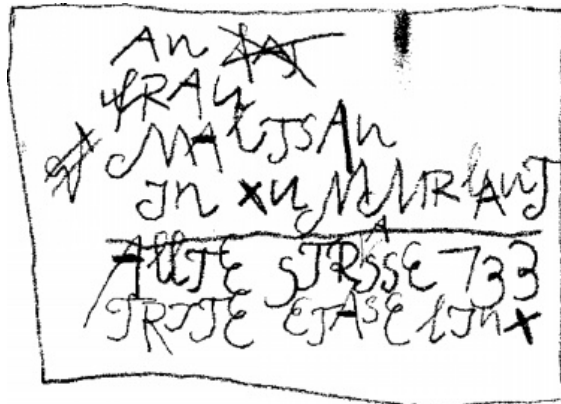 An
FRAu
MAlTSAn
In XuMMRlAnT
AllTE STRASSE 733
TRITE ETASE lInX